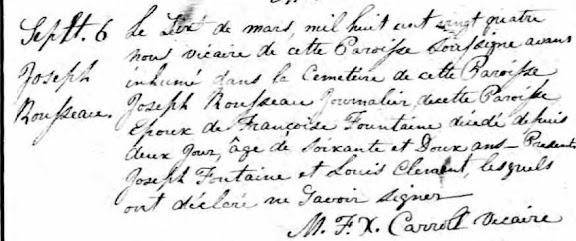 Sept. 6 Le Six de mars, mil huit cent vingt quatre
nous vicaire de cette Paroisse soussigné avons
Joseph inhumé dans la Cemetère de cette Paroisse
Rousseau. Joseph Rousseau Journalier de cette Paroisse
Epoux de Françoise Fountaine décédé depuis
deux Jour, âge de Soixante et Doux ans — Presents
Joseph Fontaine et Louis Clement, lesquels
ont déclaré ne Savoir signer
M. F. X. Carroll vicaire